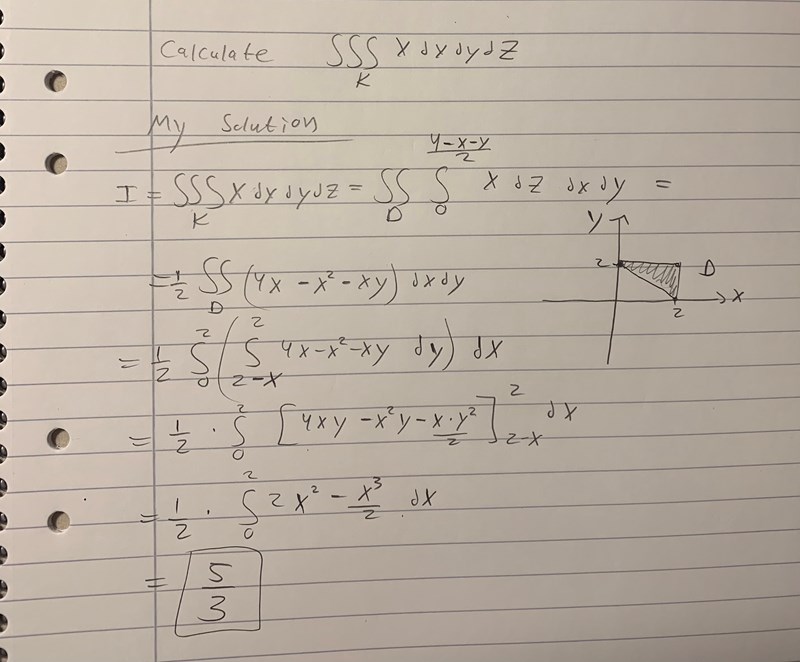 Calculate ∫∫∫_K x dx dy dz
My Solution
I = ∫∫∫_K x dx dy dz = ∫∫_D ∫_0^{(4-x-y)/2} x dz dx dy =
= 1/2 ∫∫_D (4x - x² - xy) dx dy
y
2
D
x
2
= 1/2 ∫_0^2 ( ∫_{2-x}^2 4x - x² - xy dy ) dx
= 1/2 · ∫_0^2 [ 4xy - x²y - x·y²/2 ]_{2-x}^2 dx
= 1/2 · ∫_0^2 2x² - x³/2 dx
= 5/3